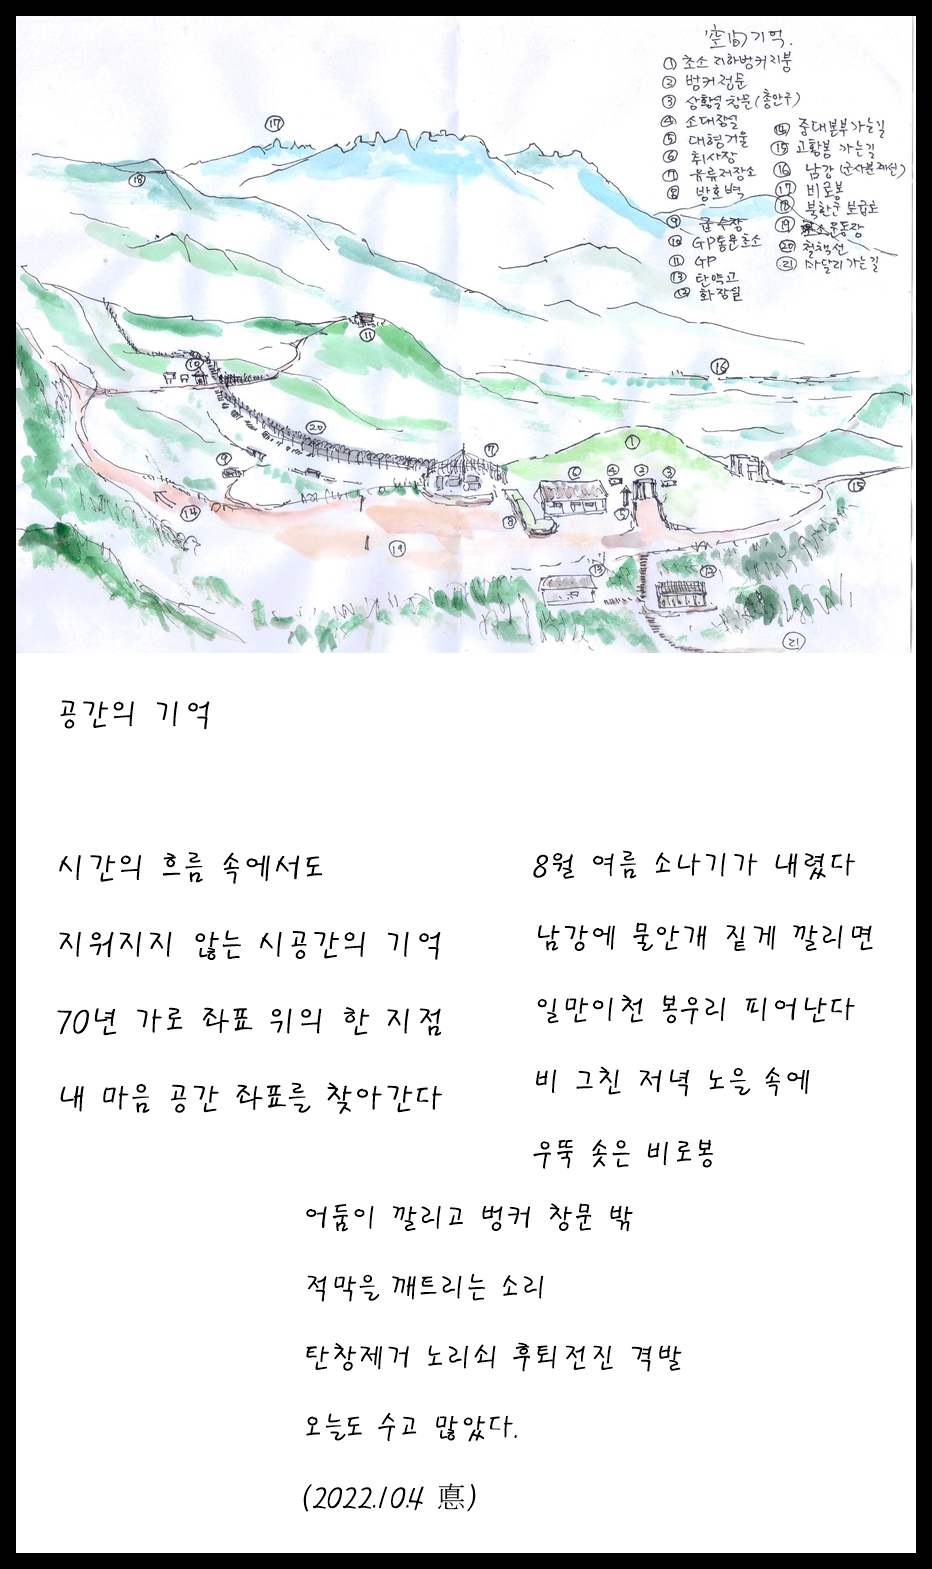 '空间기억.
① 초소 지하벙커 지붕
② 벙커정문
③ 상황실 창문(총안구)
④ 소대장실
⑤ 대형거울
⑥ 취사장
⑦ 유류저장소
⑧ 방호벽
⑨ 급수장
⑩ GP통문초소
⑪ GP
⑬ 탄약고
⑫ 화장실
⑭ 중대본부가는길
⑮ 고황봉 가는길
⑯ 남강(군사분계선)
⑰ 비로봉
⑱ 북한군 보급로
⑲ 초소운동장
⑳ 철책선
㉑ 마달리가는길
⑰
⑱
⑪
⑩
⑯
⑳
⑨
⑦
①
⑥ ④ ② ③
⑮
⑭
⑧
⑤
⑲
⑬
⑫
㉑
공간의 기억
시간의 흐름 속에서도
지워지지 않는 시공간의 기억
70년 가로 좌표 위의 한 지점
내 마음 공간 좌표를 찾아간다
8월 여름 소나기가 내렸다
남강에 물안개 짙게 깔리면
일만이천 봉우리 피어난다
비 그친 저녁 노을 속에
우뚝 솟은 비로봉
어둠이 깔리고 벙커 창문 밖
적막을 깨트리는 소리
탄창제거 노리쇠 후퇴전진 격발
오늘도 수고 많았다.
(2022.10.4 憙)